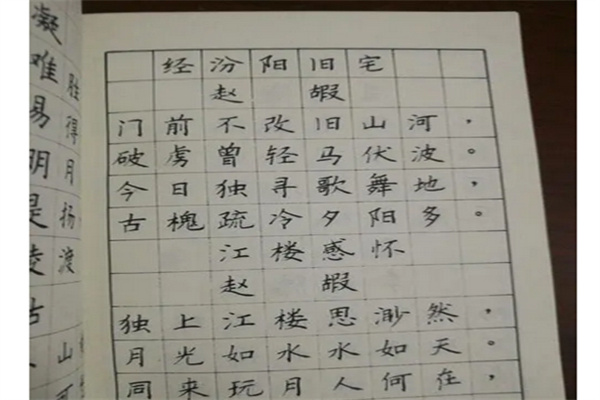 经汾阳旧宅
赵 嘏
门前不改旧山河，
破虏曾轻马伏波。
今日独寻歌舞地，
古槐疏冷夕阳多。
江楼感怀
赵 嘏
独上江楼思渺然，
月光如水水如天。
同来玩月人何在，
胜得月扬渡山
难易明是